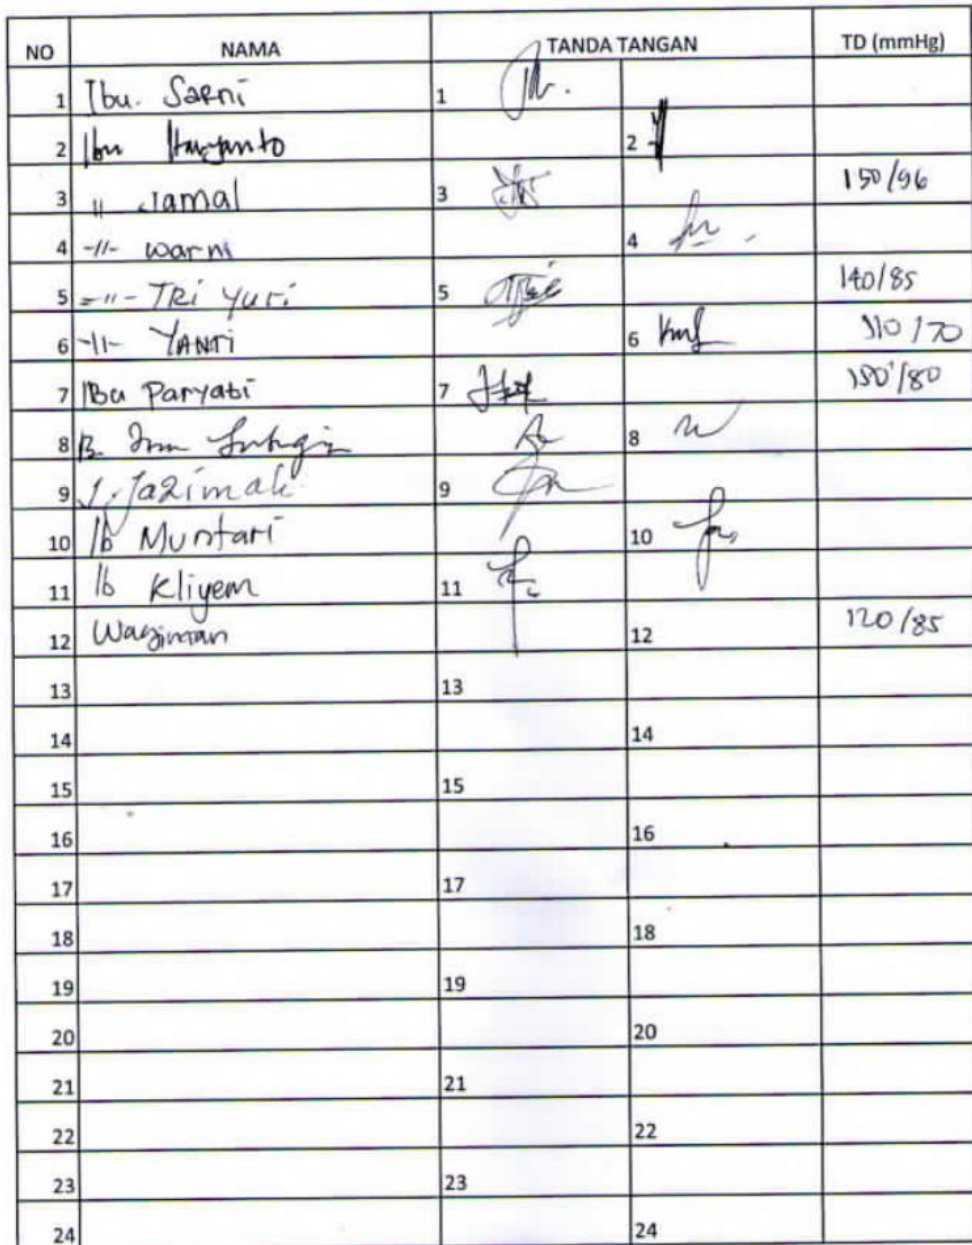 NO NAMA TANDA TANGAN TD (mmHg)
1 Ibu. Sarni 1
2 Ibu Haryanto 2
3 " Jamal 3 150/96
4 -//- warni 4
5 =''- TRi Yuri 5 140/85
6 -11- YANTI 6 110/70
7 IBu Paryati 7 150/80
8 B. 8
9 Jazimah 9
10 Ib Muntari 10
11 Ib Kliyem 11
12 Wagiman 12 120/85
13 13
14 14
15 15
16 16
17 17
18 18
19 19
20 20
21 21
22 22
23 23
24 24